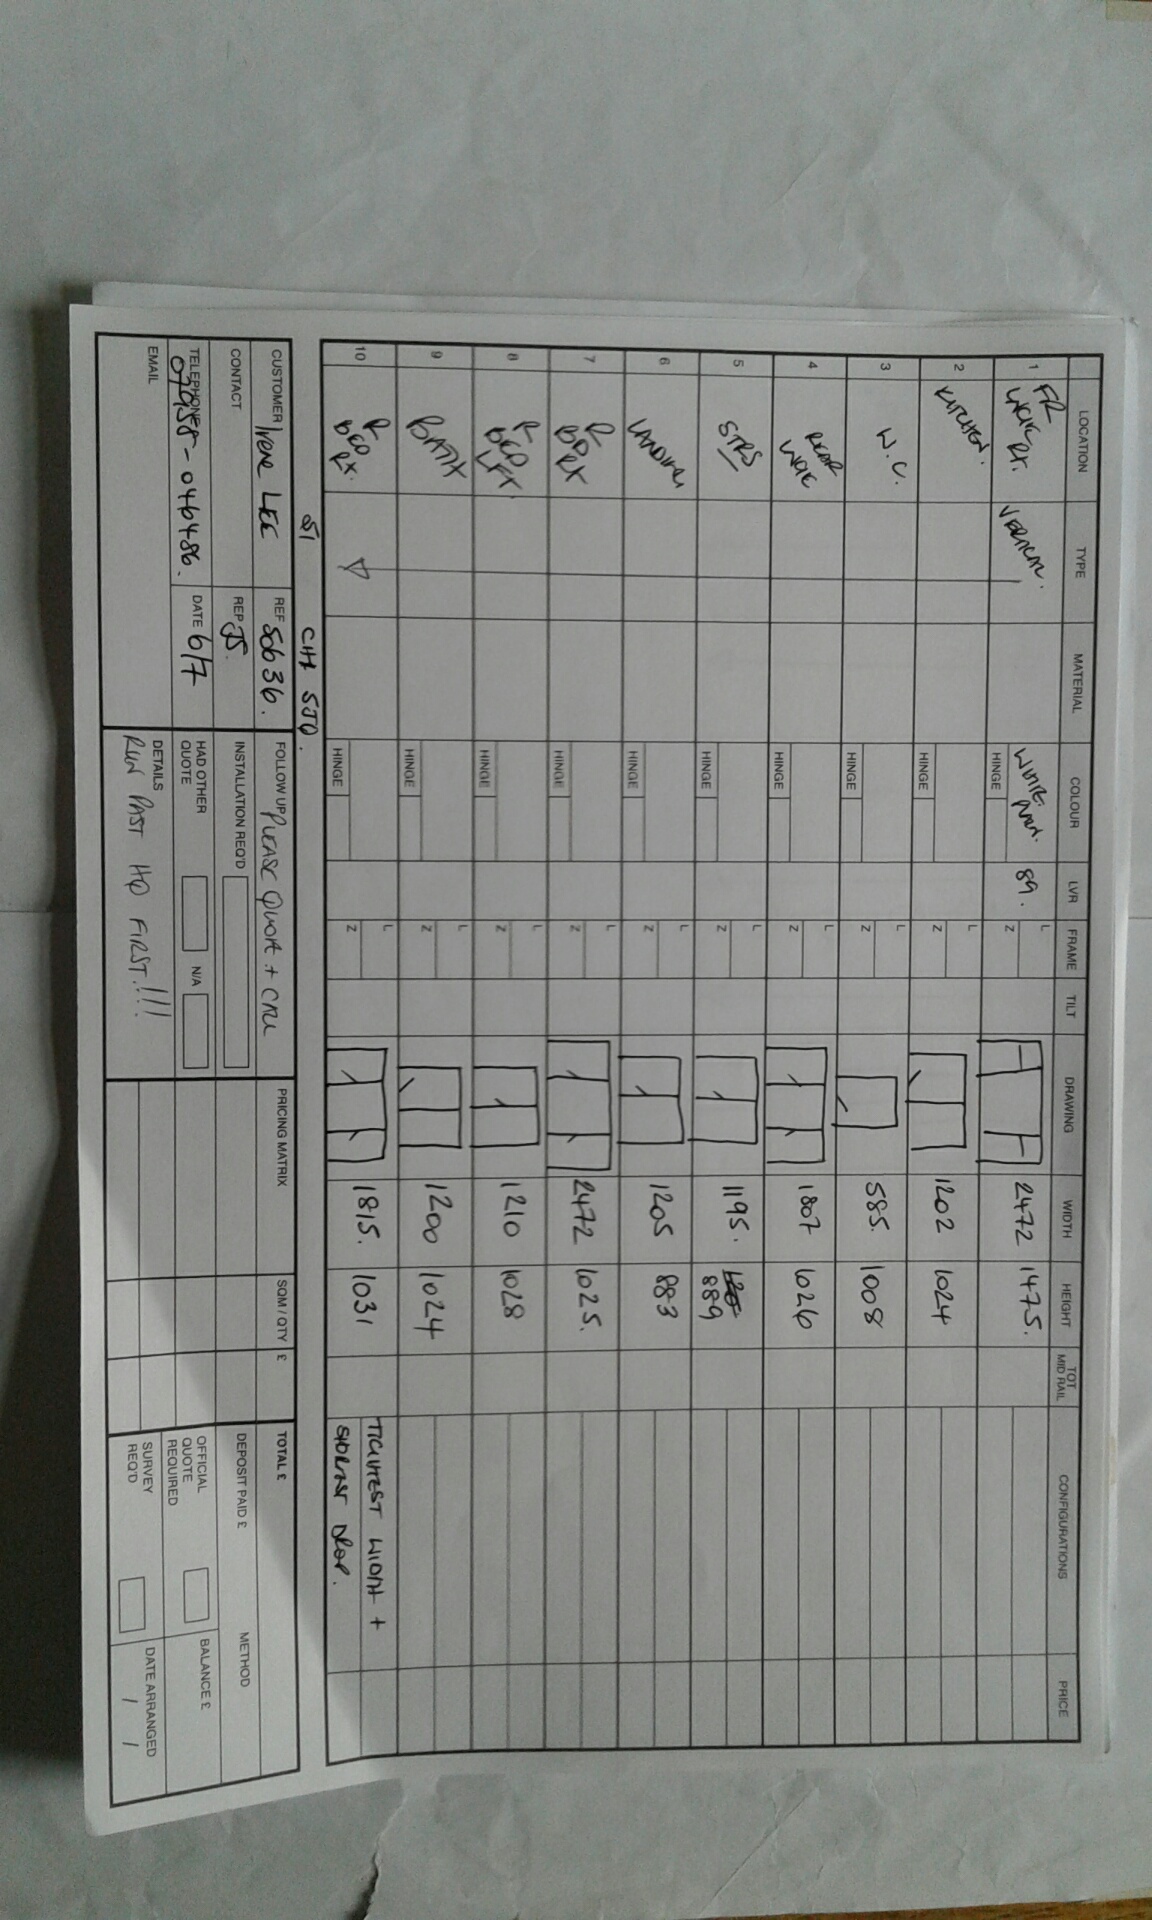 LOCATION TYPE MATERIAL COLOUR LVR FRAME TILT DRAWING WIDTH HEIGHT TOT MID RAIL CONFIGURATIONS PRICE
1 FR VERTICAL. WHITE 89. L 2472 1475.
HINGE Z
2 KITCHEN. L 1202 1024
HINGE Z
3 W.C. L 585. 1008
HINGE Z
4 REAR L 1807 1026
HINGE Z
5 STRS L 1195. 889
HINGE Z
6 LANDING L 1205 883
HINGE Z
7 R BD RX L 2472 1025.
HINGE Z
8 R BED LFX L 1210 1028
HINGE Z
9 BATH L 1200 1024
HINGE Z
10 R BED RX. L 1815. 1031 TIGHTEST WIDTH +
HINGE Z SHORTEST DROP.
CUSTOMER Irene LEE
REF 50636.
CONTACT
REP JS.
TELEPHONE 07958-046486.
DATE 6/7
EMAIL
FOLLOW UP PLEASE QUOTE + CALL
INSTALLATION REQ'D
HAD OTHER QUOTE N/A
DETAILS
RUN PAST HD FIRST!!!
PRICING MATRIX SQM / QTY £ TOTAL £
DEPOSIT PAID £ METHOD
OFFICIAL QUOTE REQUIRED BALANCE £
SURVEY REQ'D DATE ARRANGED
/ /